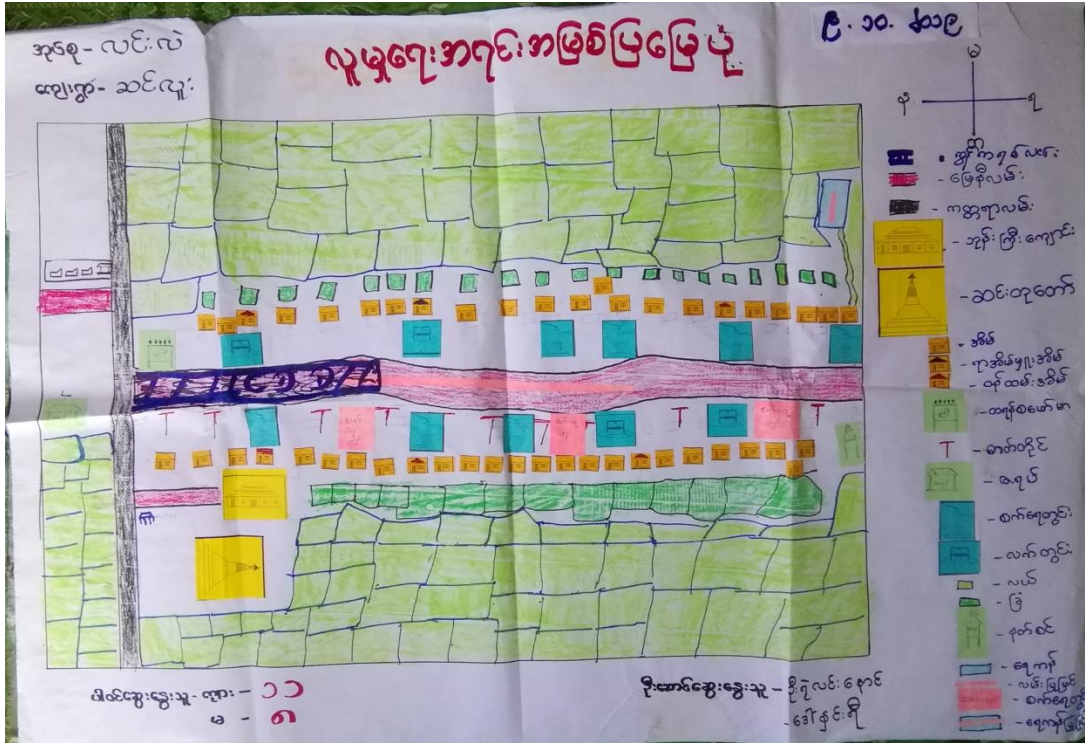 အုပ်စု - လင်းလဲ
ကျေးရွာ - ဆင်လူး
လူမှုရေးအရင်းအမြစ်ပြမြေပုံ
၉.၁၀.၂၀၁၉
မ
န
ရ
- ကွန်ကရစ်လမ်း
- မြေနီလမ်း
- ကတ္တရာလမ်း
- ဘုန်းကြီးကျောင်း
- ဆင်းတုတော်
- အိမ်
- ရာအိမ်မှူးအိမ်
- ဝန်ထမ်းအိမ်
- ထရန်စဖော်မာ
- ဓာတ်တိုင်
- ဇရပ်
- စက်ရေတွင်း
- လက်တွင်း
- လယ်
- ခြံ
- နတ်စင်
- ရေကန်
- လမ်းပြုပြင်
- စက်ရေတွင်း
- ရေကန်
ပါဝင်ဆွေးနွေးသူ - ကျား - ၁၁
မ - ၈
ဦးဆောင်ဆွေးနွေးသူ - ဦးရဲလင်းနောင်
- ဒေါ်နှင်းရီ